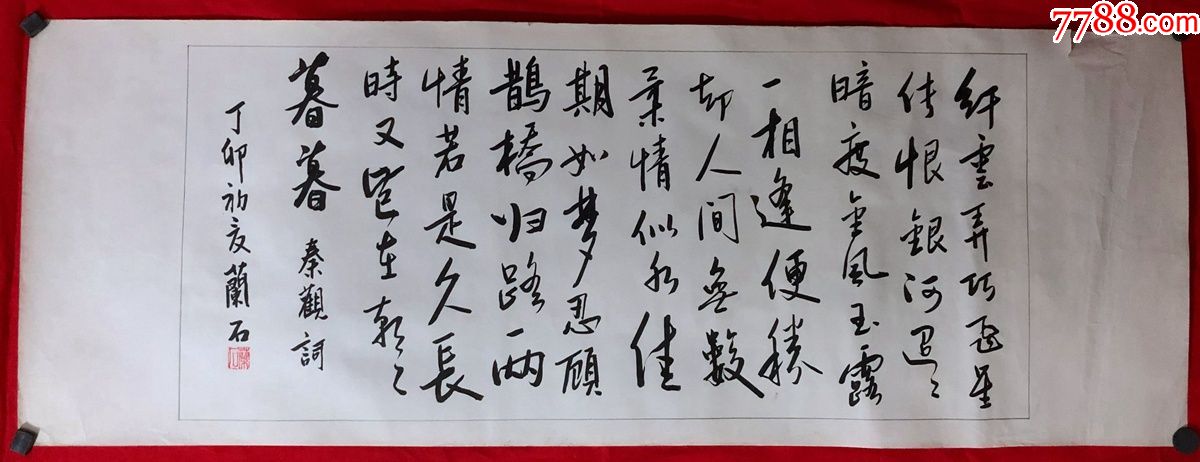 7788.com
纤雲弄巧飛星
传恨銀河迢々
暗度金風玉露
一相逢便勝
却人間無數
柔情似水佳
期如梦忍顧
鵲橋归路两
情若是久長
時又豈在朝々
暮暮 秦觀詞
丁卯初夏蘭石